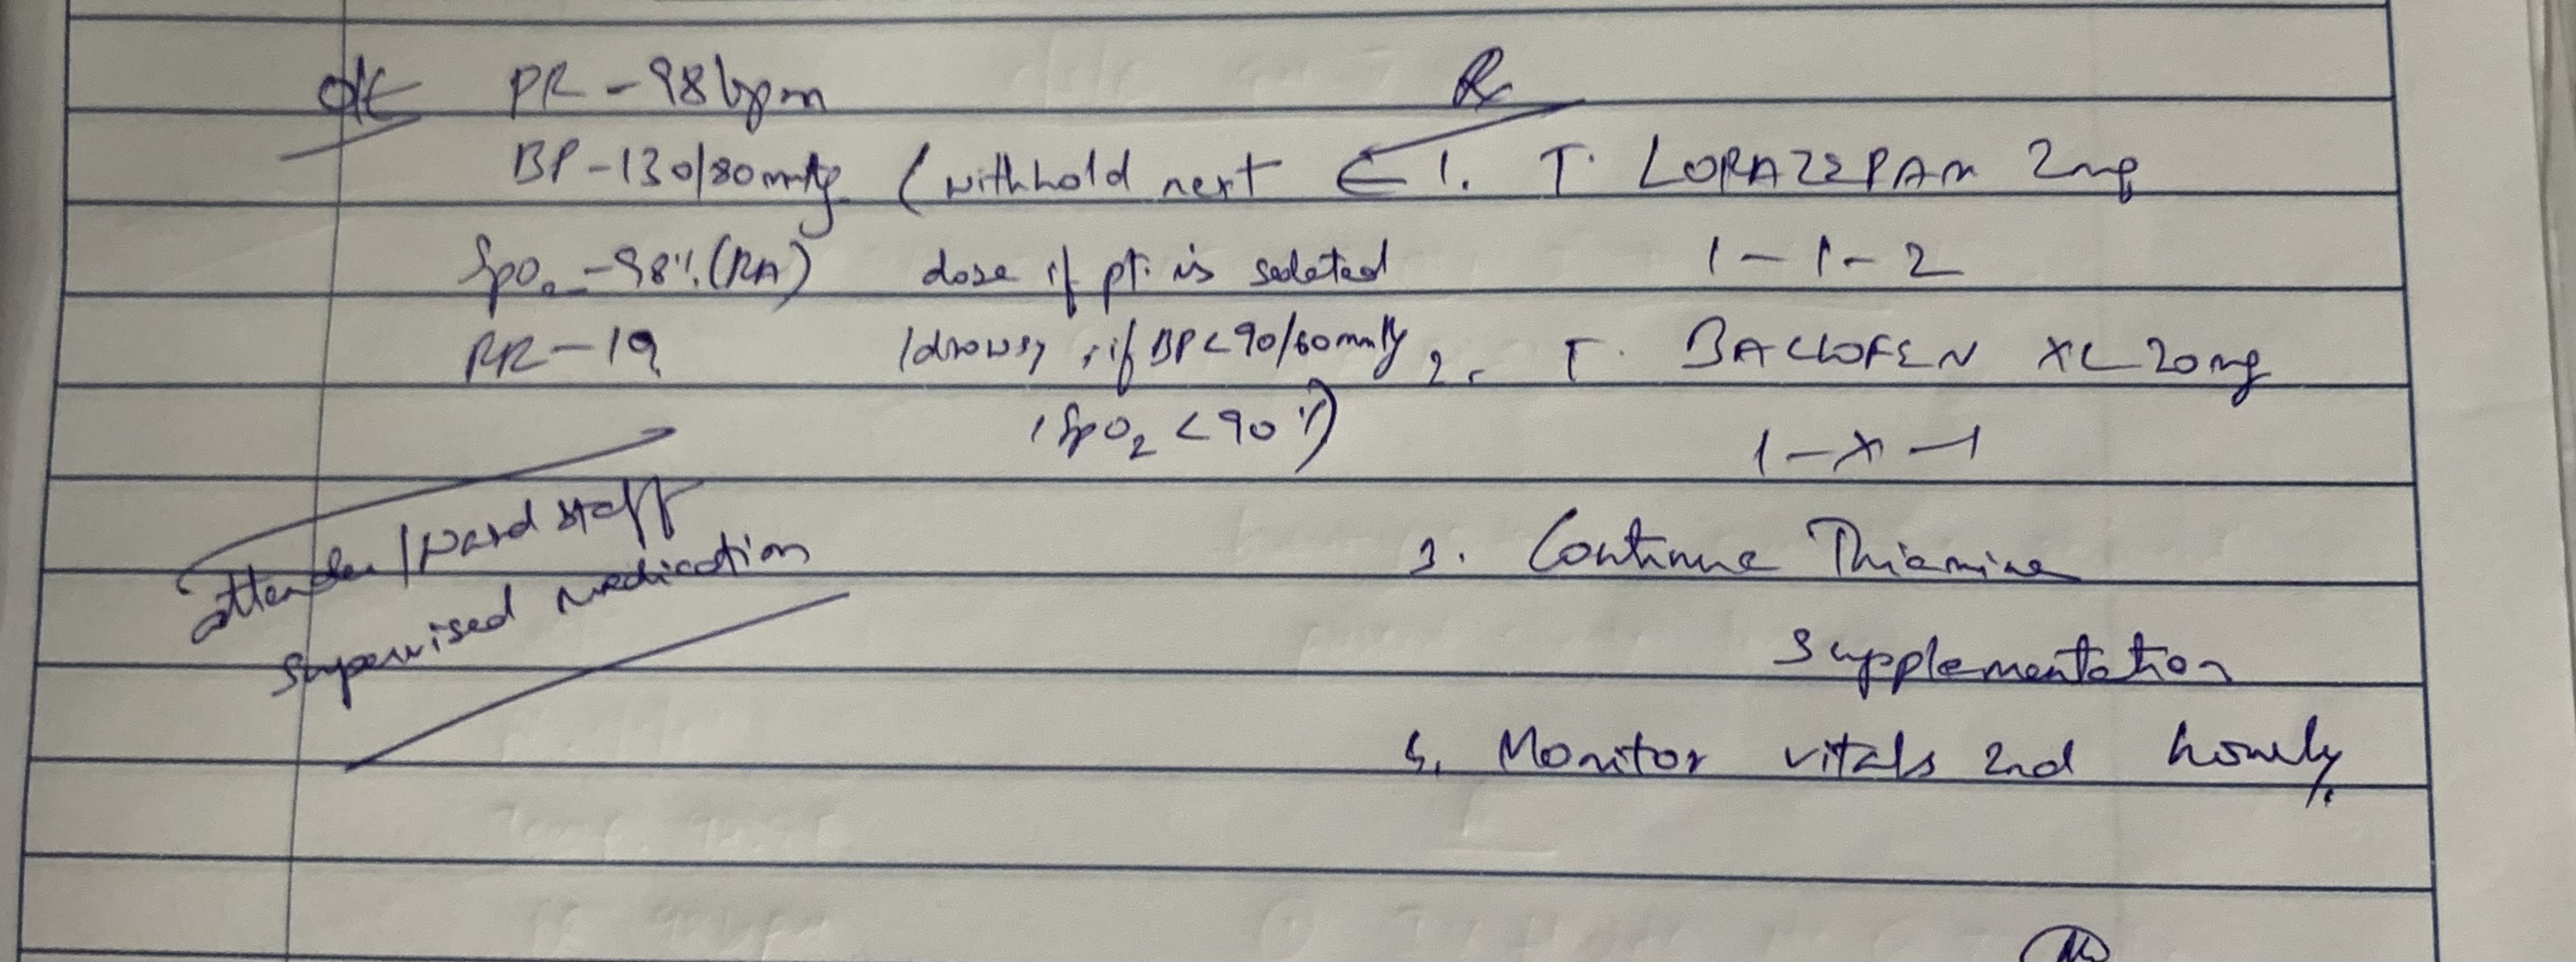 O/E PR - 98 bpm
BP - 130/80 mmHg
SpO2 - 98% (RA)
RR - 19
attender / ward staff
supervised medication
Rx
1. T. LORAZEPAM 2mg
1 - 1 - 2
(withhold next
dose if pt. is sedated
/drowsy, if BP < 90/60 mmHg
, SpO2 < 90%)
2. T. BACLOFEN XL 20mg
1 - x - 1
3. Continue Thiamine
Supplementation
4. Monitor vitals 2nd hourly.